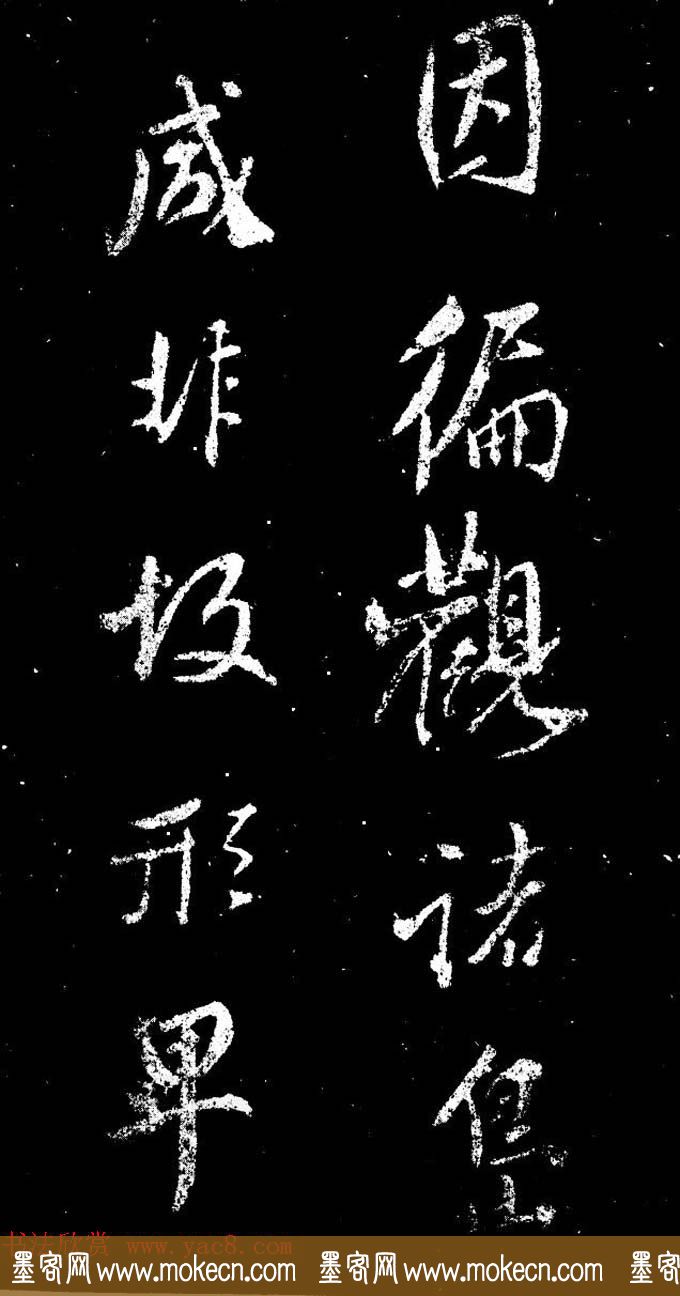 因徧觀諸
咸非形卑
书法欣赏 www.yac8.com
墨客网www.mokecn.com 墨客网www.mokecn.com